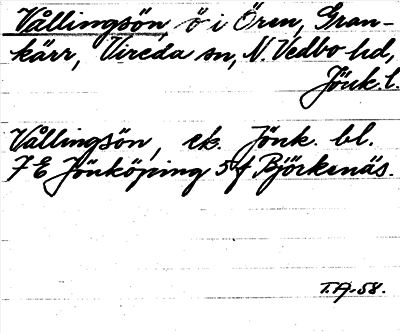 Vållingsön, ö i Ören, Gran-
kärr, Vireda sn, N. Vedbo hd,
Jönk. l.
Vållingsön, ek. Jönk. bl.
7 E Jönköping 5f Björkenäs.
T.A. 58.